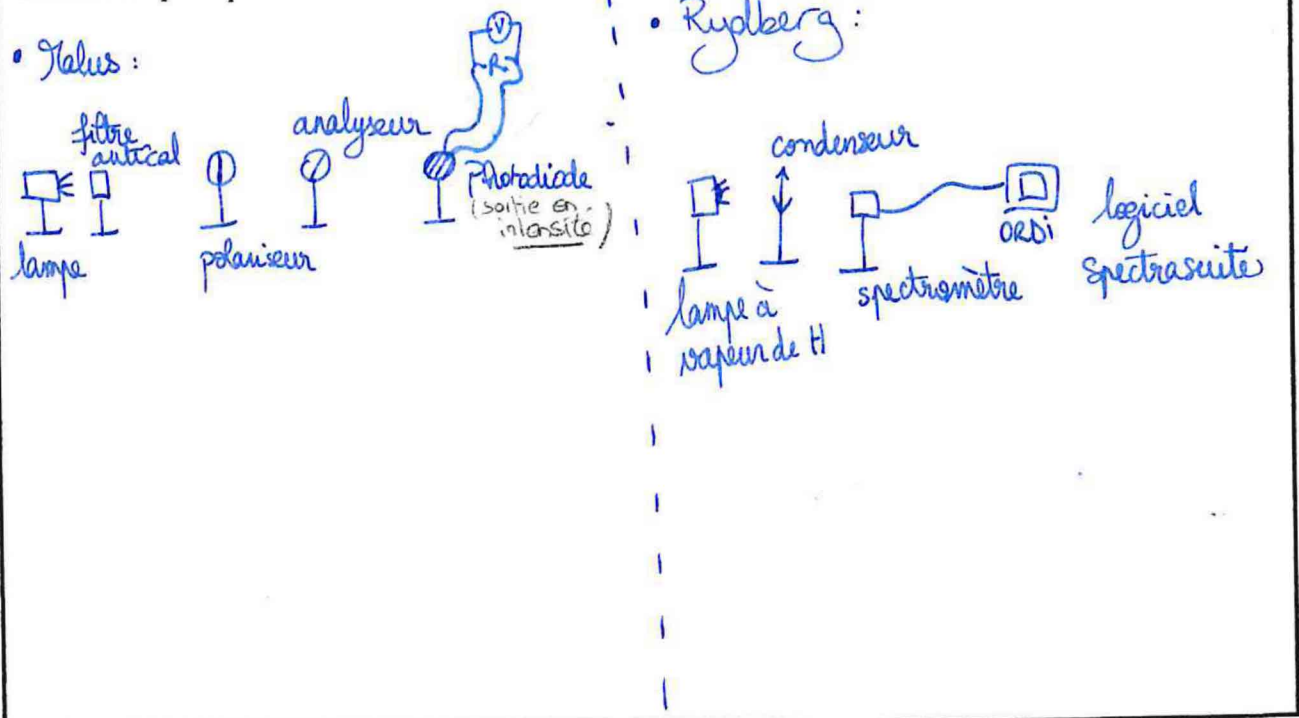 • Malus :
filtre
antical
analyseur
V
R
Photodiode
(sortie en
intensité)
lampe
polariseur
• Rydberg :
condenseur
ORDI
logiciel
Spectrasuite
spectromètre
lampe à
vapeur de H